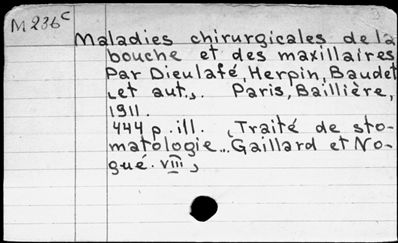 M236c
Maladies chirurgicales de la
bouche et des maxillaires
Par Dieulafé, Herpin, Baudet
et aut. Paris, Baillière,
1911.
444 p. ill. (Traité de sto-
matologie... Gaillard et No-
gué. VIII)